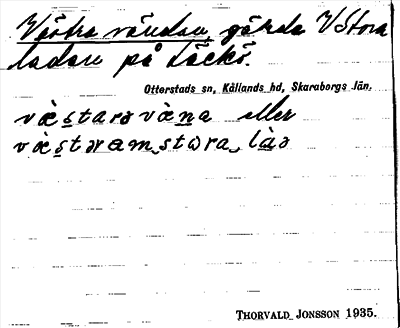 Västra vändan, gärde V Stora
ladan på Läckö.
Otterstads sn, Kållands hd, Skaraborgs län.
væstarə væna eller
væstəram stωra làə
THORVALD JONSSON 1935.